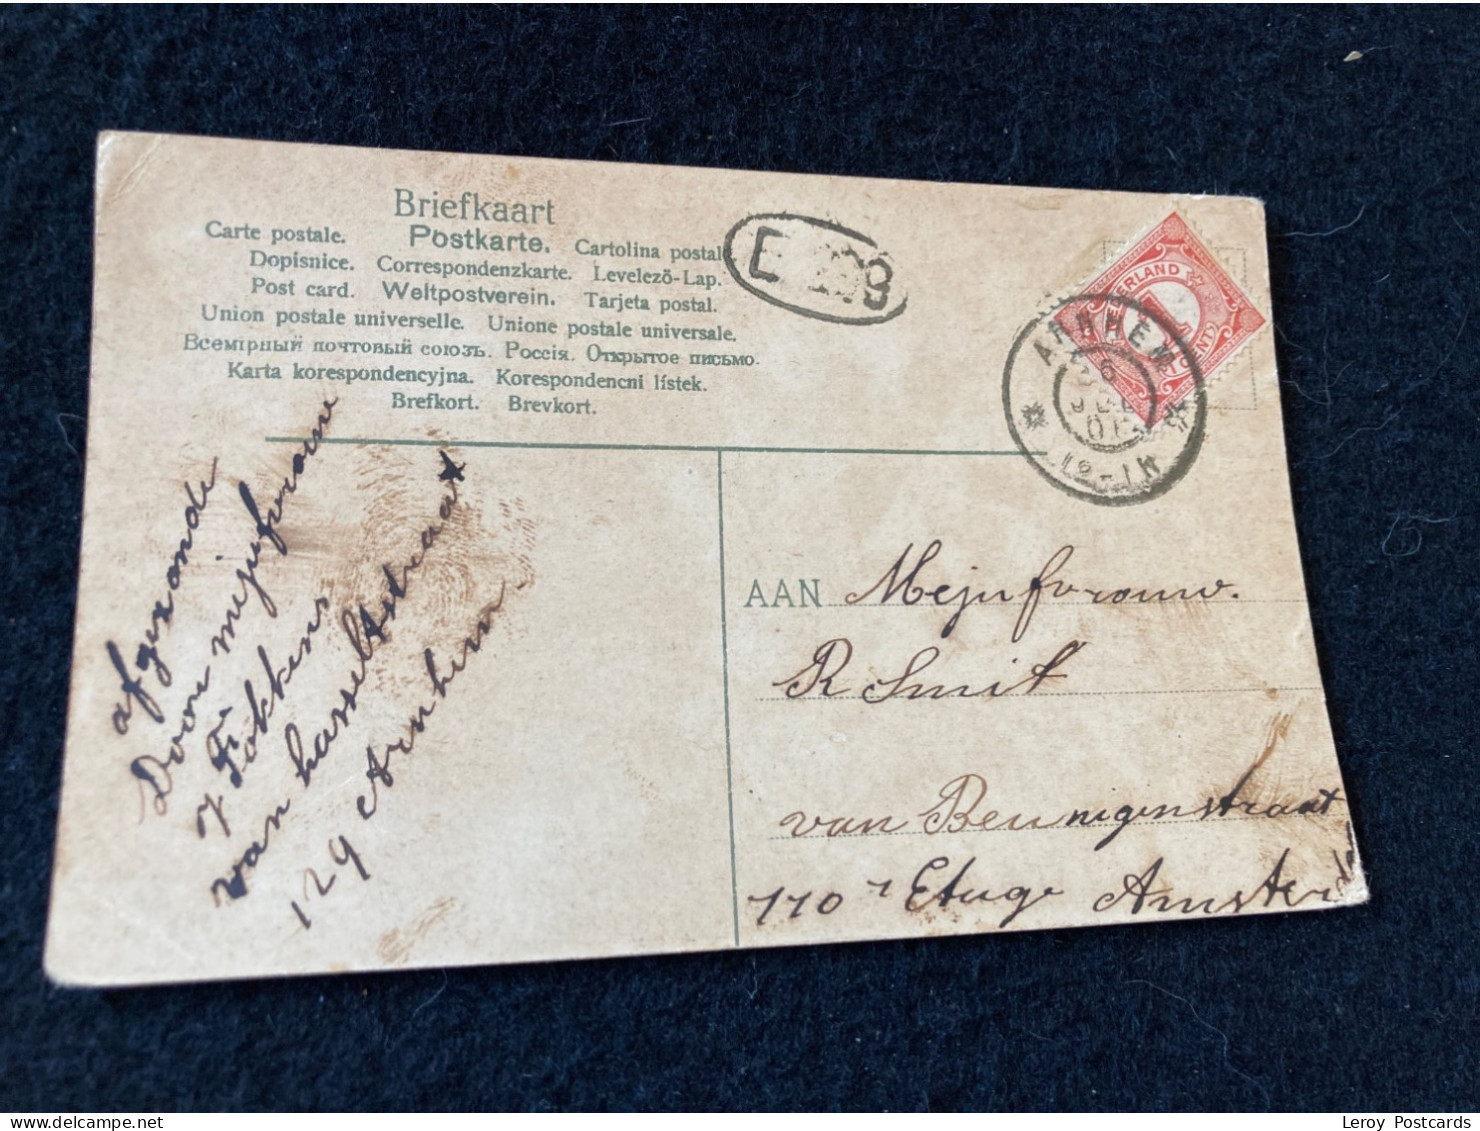 Briefkaart
Carte postale. Postkarte. Cartolina postal
Dopisnice. Correspondenzkarte. Levelező-Lap.
Post card. Weltpostverein. Tarjeta postal.
Union postale universelle. Unione postale universale.
Всемірный почтовый союзъ. Россія. Открытое письмо.
Karta korespondencyjna. Korespondencni lístek.
Brefkort. Brevkort.
ARNHEM
6
12-1N
afgezonde
Door mejufvrouw
Fokkens
van hasseltstraat
129 Arnhem
AAN Mejufvrouw.
R Smit
van Beuningenstraat
110 Etage Amsterda
Leroy Postcards